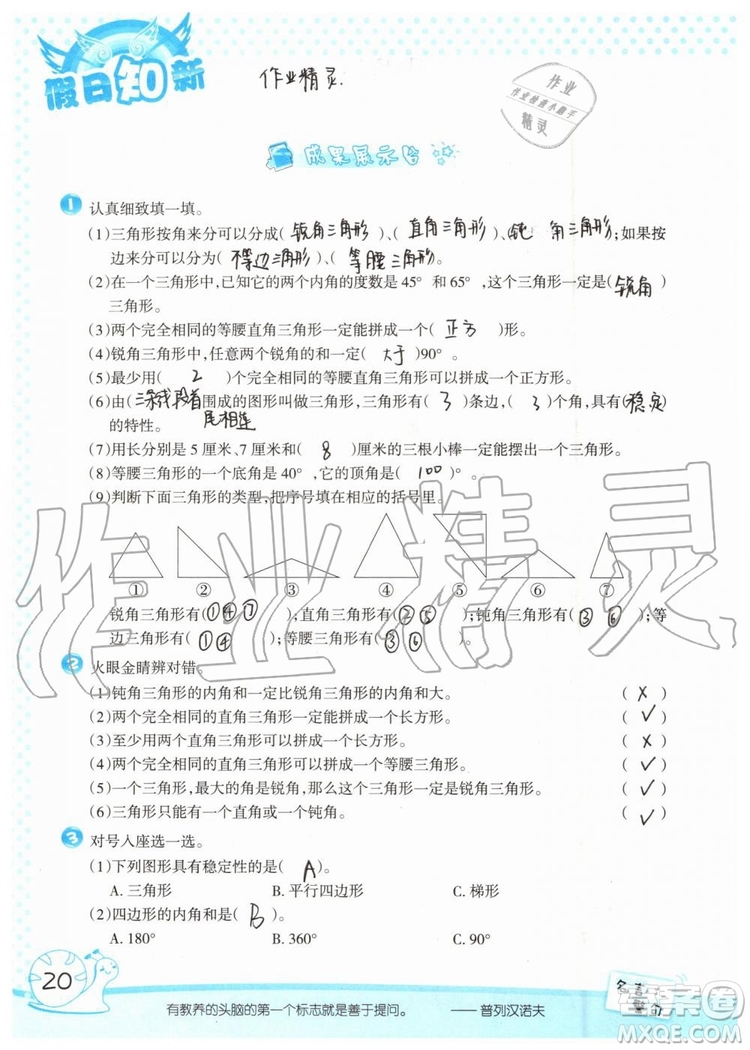 假日知新
作业精灵.
作业
作业快速小题手
精灵
成果展示台
1 认真细致填一填。
(1)三角形按角来分可以分成( 锐角三角形 )、( 直角三角形 )、( 钝 角三角形 );如果按
边来分可以分为( 不等边三角形 )、( 等腰三角形 )。
(2)在一个三角形中,已知它的两个内角的度数是45°和65°,这个三角形一定是( 锐角 )
三角形。
(3)两个完全相同的等腰直角三角形一定能拼成一个( 正方 )形。
(4)锐角三角形中,任意两个锐角的和一定( 大于 )90°。
(5)最少用( 2 )个完全相同的等腰直角三角形可以拼成一个正方形。
(6)由( 三条线段首尾相连 )围成的图形叫做三角形,三角形有( 3 )条边,( 3 )个角,具有( 稳定 )
的特性。
(7)用长分别是5厘米、7厘米和( 8 )厘米的三根小棒一定能摆出一个三角形。
(8)等腰三角形的一个底角是40°,它的顶角是( 100° )。
(9)判断下面三角形的类型,把序号填在相应的括号里。
① ② ③ ④ ⑤ ⑥ ⑦
锐角三角形有( ①④⑦ );直角三角形有( ②⑤ );钝角三角形有( ③⑥ );等
边三角形有( ①④ );等腰三角形有( ②⑥ )。
2 火眼金睛辨对错。
(1)钝角三角形的内角和一定比锐角三角形的内角和大。 ( × )
(2)两个完全相同的直角三角形一定能拼成一个长方形。 ( ✓ )
(3)至少用两个直角三角形可以拼成一个长方形。 ( × )
(4)两个完全相同的直角三角形可以拼成一个等腰三角形。 ( ✓ )
(5)一个三角形,最大的角是锐角,那么这个三角形一定是锐角三角形。 ( ✓ )
(6)三角形只能有一个直角或一个钝角。 ( ✓ )
3 对号入座选一选。
(1)下列图形具有稳定性的是( A )。
A. 三角形 B. 平行四边形 C. 梯形
(2)四边形的内角和是( B )。
A. 180° B. 360° C. 90°
作业精灵
20
有教养的头脑的第一个标志就是善于提问。 ——普列汉诺夫
名言警句
答案圈
MXQE.COM